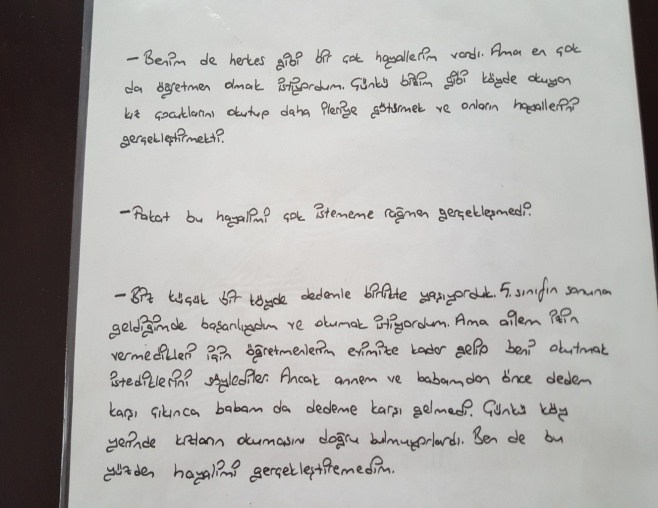 - Benim de herkes gibi bir çok hayallerim vardı. Ama en çok
da öğretmen olmak istiyordum. Çünkü bizim gibi köyde okuyan
kız çocuklarını okutup daha ileriye götürmek ve onların hayallerini
gerçekleştirmekti.
- Fakat bu hayalimi çok istememe rağmen gerçekleşmedi.
- Biz küçük bir köyde dedemle birlikte yaşıyorduk. 5. sınıfın sonuna
geldiğimde başarılıydım ve okumak istiyordum. Ama ailem izin
vermedikleri için öğretmenlerim evimize kadar gelip beni okutmak
istediklerini söylediler. Ancak annem ve babamdan önce dedem
karşı çıkınca babam da dedeme karşı gelmedi. Çünkü köy
yerinde kızların okumasını doğru bulmuyorlardı. Ben de bu
yüzden hayalimi gerçekleştiremedim.